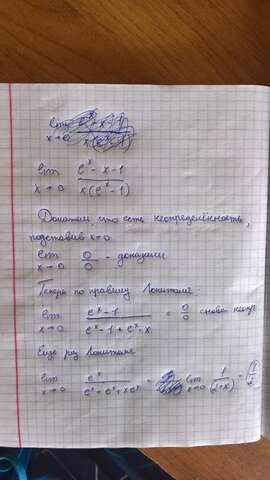 lim x→0 (e^x - x - 1)/(x(e^x - 1))
Докажем что есть неопределённость,
подставив x=0
lim x→0 0/0 - доказали
Теперь по правилу Лопиталя:
lim x→0 (e^x - 1)/(e^x - 1 + e^x · x) = 0/0 снова
Еще раз Лопиталь
lim x→0 e^x/(e^x + e^x + xe^x) = lim x→0 1/(2+x) = 1/2